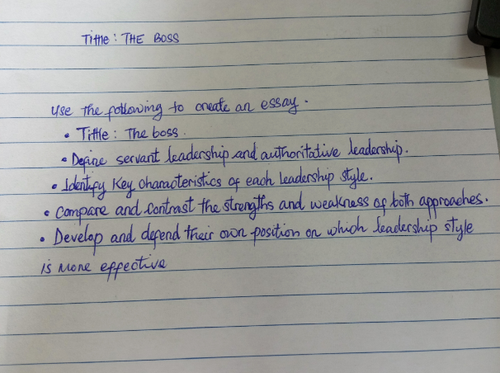 Tittle: THE BOSS
Use the following to create an essay.
• Tittle: The boss.
• Define servant leadership and authoritative leadership.
• Identify key characteristics of each leadership style.
• Compare and contrast the strengths and weakness of both approaches.
• Develop and defend their own position on which leadership style
is more effective